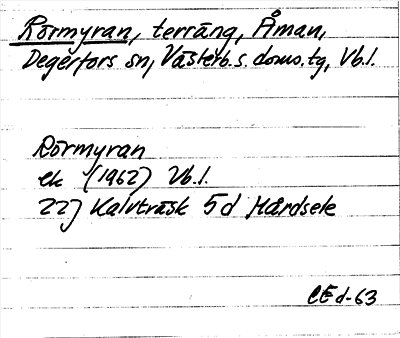 Rörmyran, terräng, Åman,
Degerfors sn, Västerb. s. doms. tg, Vb. l.
Rörmyran
ek (1962) Vb. l.
22J Kalvträsk 5d Mårdsele
CE d-63